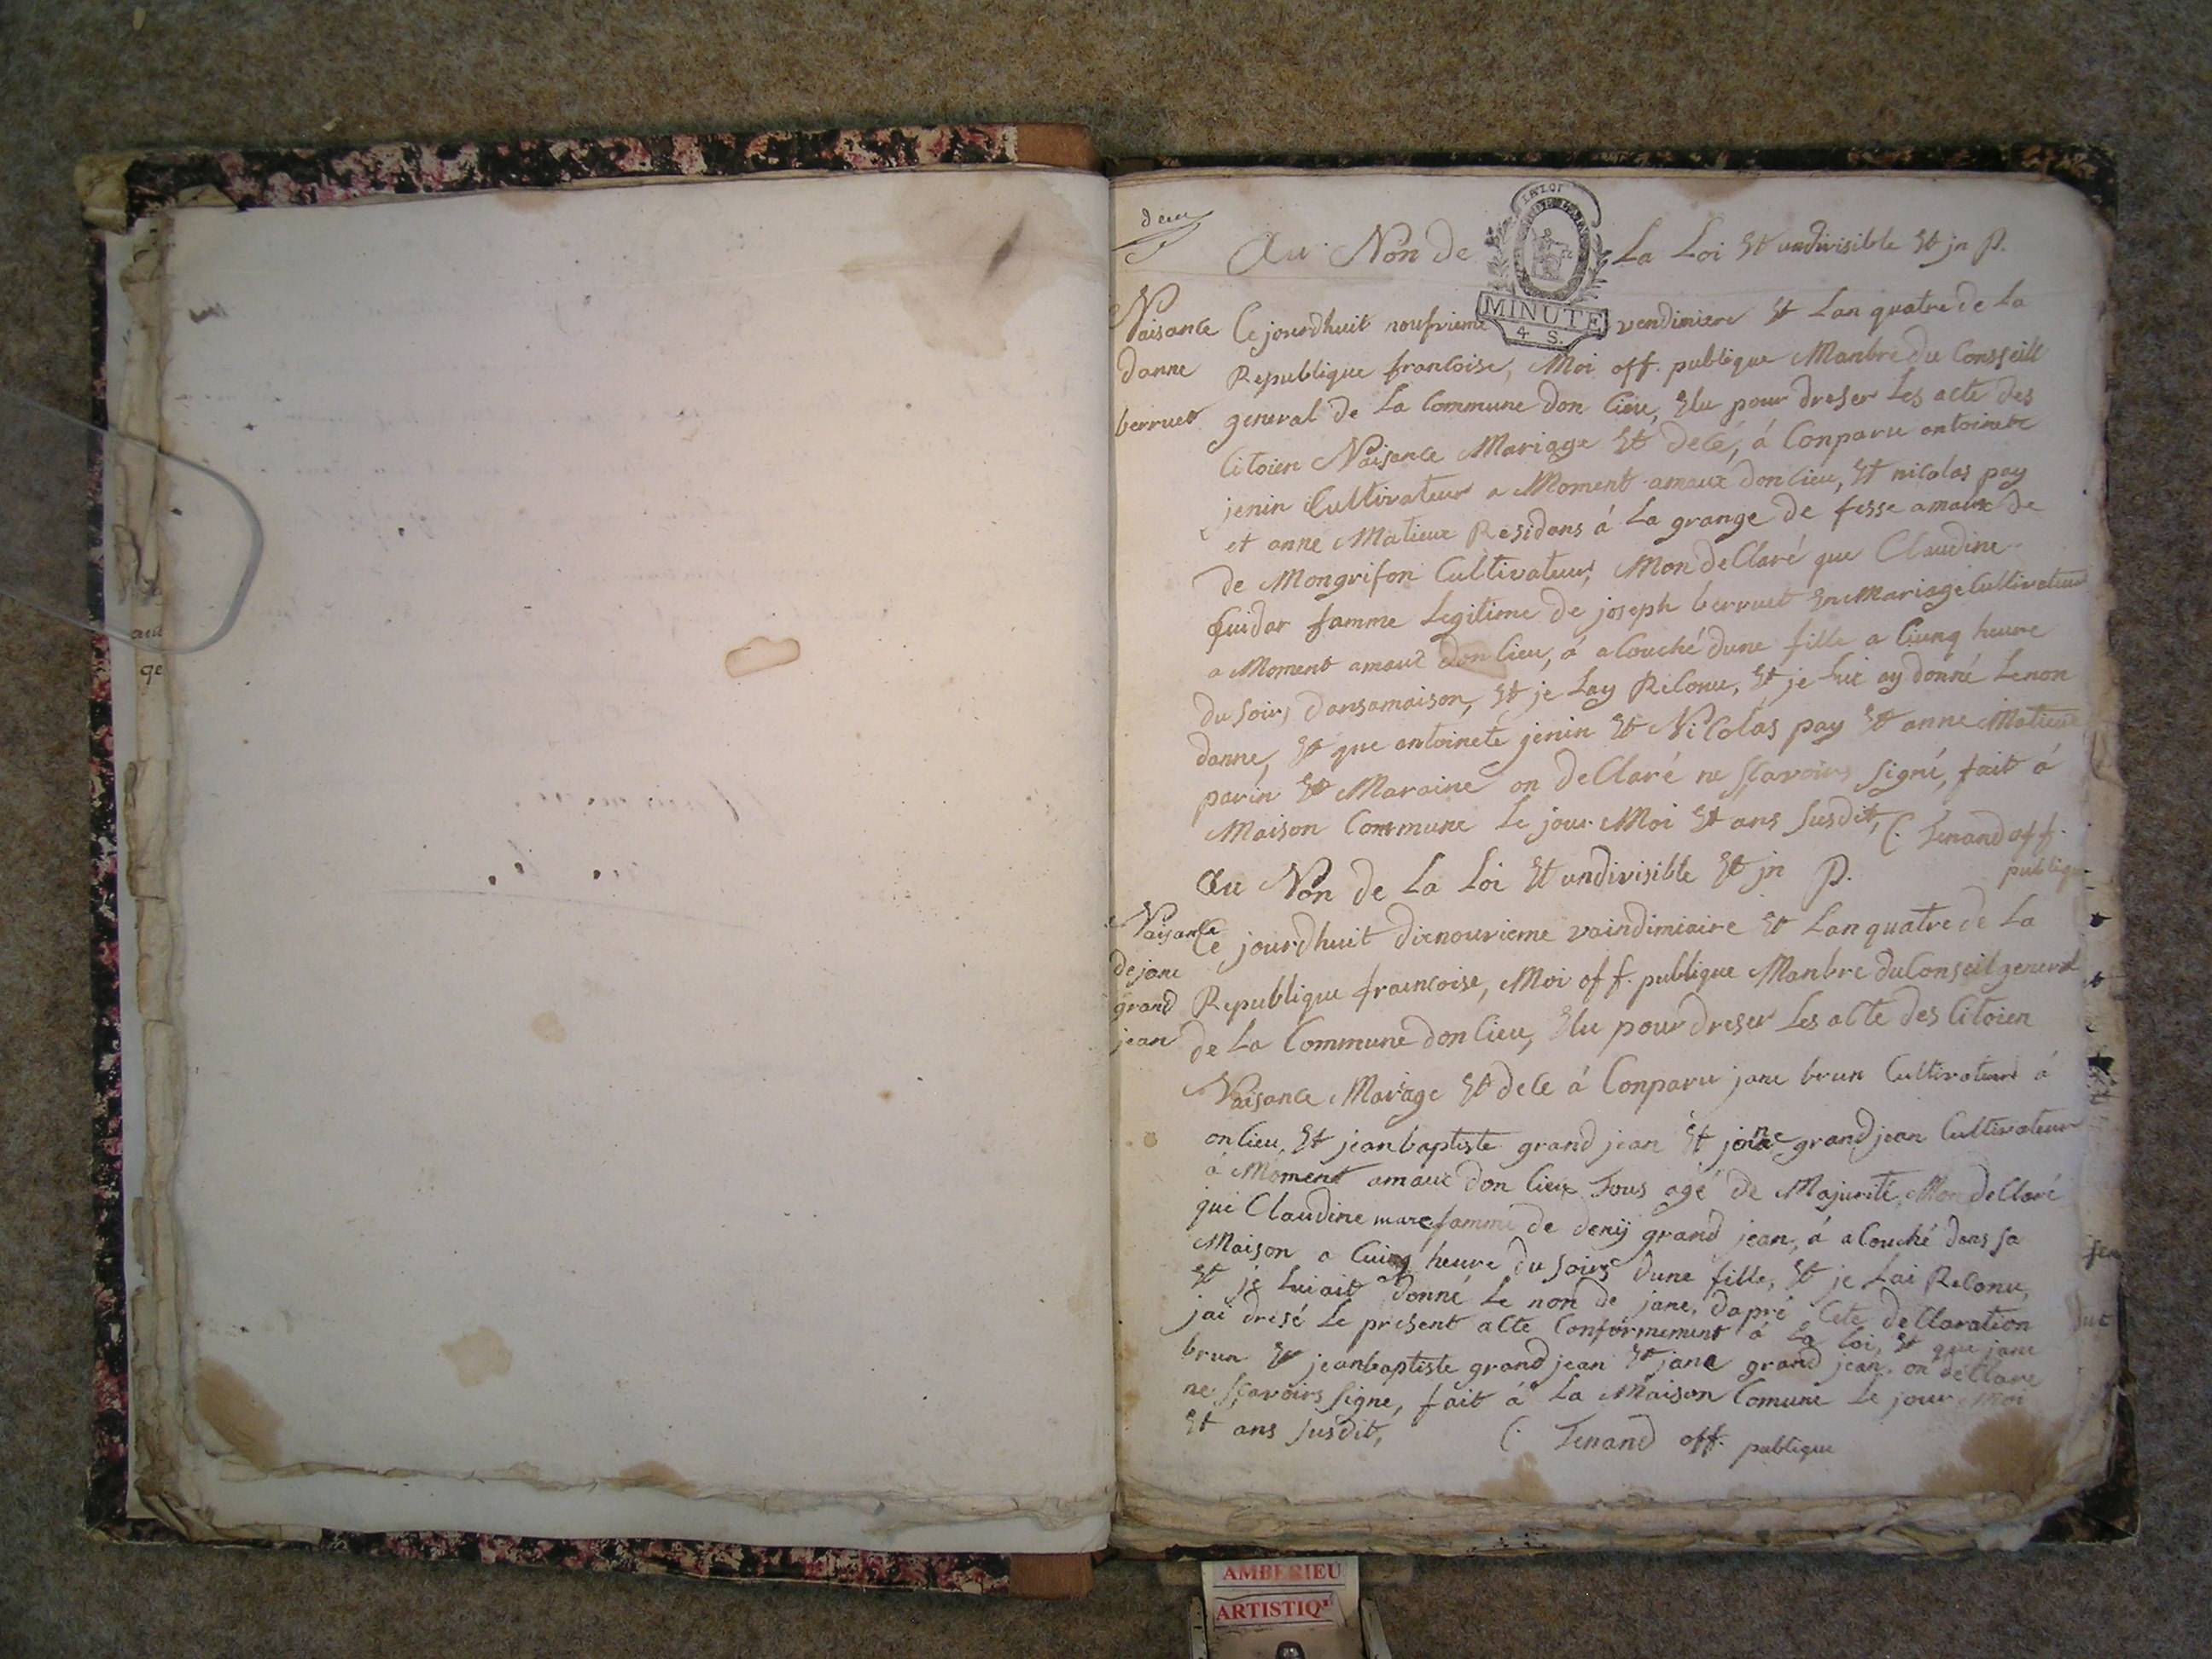 deu
Au Non de La Loi Et undivisible Et jn P.
LA LOI
MINUTE
4 S.
Naisance
danne
berruet
Ce jourdhuit noufvieme vendimiere Et Lan quatre de La
Republique francoise, Moi off. publique Manbre du Consseill
general de La Commune don lieu, Elu pour dreser Les acte des
Citoien Naisance Mariage Et décé, á Conparu antoinete
jenin Cultivateur a Moment amaux donlieu, Et nicolas pay
et anne Matieux Residans á La grange de fesse amaux de
de Mongrifon Cultivateur, Mon deClaré que Claudine
Guidar famme Legitime de joseph berruet En Mariage Cultivateur
a Moment amaux don lieu, á aCouché dune fille a Ciinq heure
du Soir, dansamaison, Et je Lay ReConu, Et je Luit ay donné Le non
danne, Et que antoineté jenin Et NiColas pay Et anne Matieux
parin Et Maraine on deClaré ne Sçavoirs Signé, fait á
Maison Commune Le jour Moi Et ans Susdit, C. Tenand off.
publique
Au Non de La Loi Et undivisible Et jn P.
Naisance
de jane
grand
jean
Ce jourdhuit dixnouvieme vaindimiaire Et Lan quatre de La
Republique francoise, Moi off. publique Manbre du Conseil general
de La Commune don lieu, Elu pour dreser Les aCte des Citoien
Naisance Mariage Et deCe á Conparu jane brun Cultivateur á
onlieu, Et jeanbaptiste grand jean Et jane grand jean Cultivateur
á Moment amaux don lieu Tous agé de Majurité, Mon deClaré
que Claudine mare famme de denij grand jean, á aCouché dans sa
Maison a Cuinq heure du Soirs dune fille, Et je Lai ReConu,
Et je Luiait donné Le non de jane, dapré Cete deClaration
jai dresé Le present aCte Conformement á La loi, Et que jane
brun Et jeanbaptiste grand jean Et jane grand jean on déClare
ne Sçavoirs Signe, fait á La Maison Comune Le jour Moi
Et ans Susdit, C. Tenand off. publique
AMBERIEU
ARTISTIQU